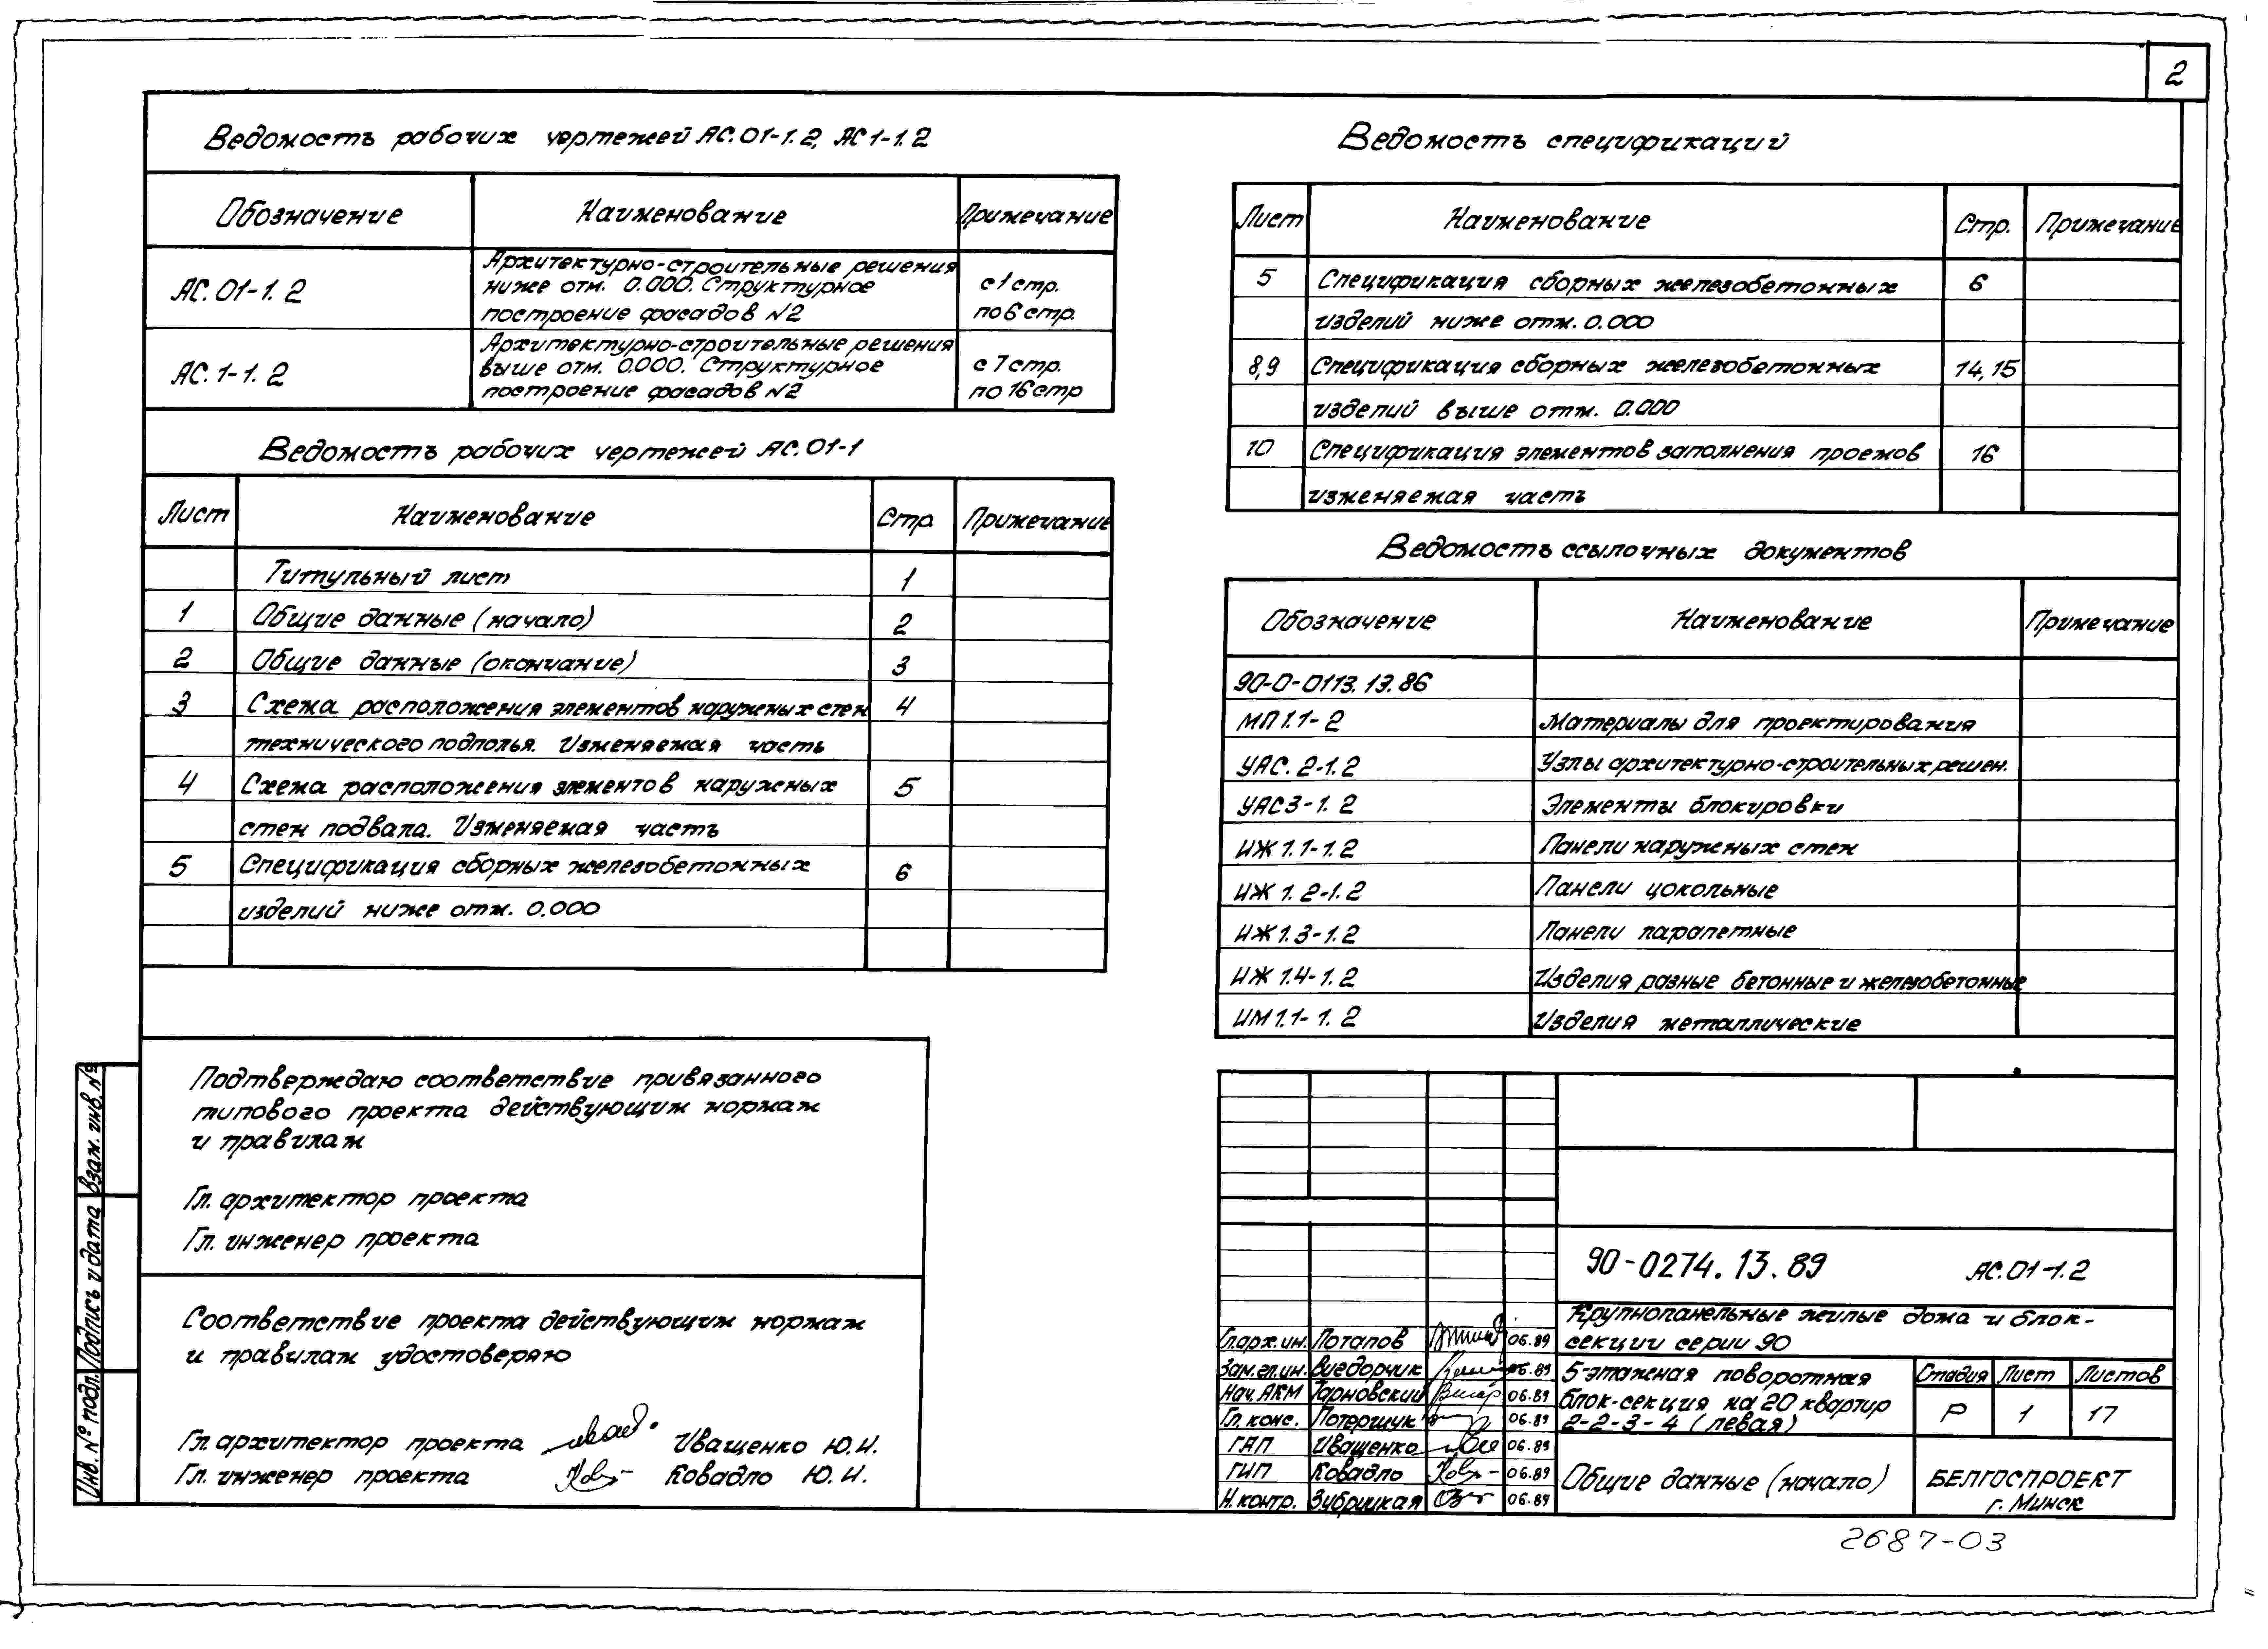 2
Ведомость рабочих чертежей АС.01-1.2, АС1-1.2
Обозначение Наименование Примечание
АС.01-1.2
Архитектурно-строительные решения
ниже отм. 0.000. Структурное
построение фасадов №2
с 1 стр.
по 6 стр.
АС.1-1.2
Архитектурно-строительные решения
выше отм. 0.000. Структурное
построение фасадов №2
с 7 стр.
по 16 стр
Ведомость рабочих чертежей АС.01-1
Лист Наименование Стр Примечание
Титульный лист 1
1 Общие данные (начало) 2
2 Общие данные (окончание) 3
3 Схема расположения элементов наружных стен 4
технического подполья. Изменяемая часть
4 Схема расположения элементов наружных 5
стен подвала. Изменяемая часть
5 Спецификация сборных железобетонных 6
изделий ниже отм. 0.000
Подтверждаю соответствие привязанного
типового проекта действующим нормам
и правилам
Гл. архитектор проекта
Гл. инженер проекта
Соответствие проекта действующим нормам
и правилам удостоверяю
Гл. архитектор проекта Иващенко Ю.И.
Гл. инженер проекта Ковадло Ю.И.
Взам. инв. №
Подпись и дата
Инв. № подл.
Ведомость спецификаций
Лист Наименование Стр. Примечание
5 Спецификация сборных железобетонных 6
изделий ниже отм. 0.000
8,9 Спецификация сборных железобетонных 14,15
изделий выше отм. 0.000
10 Спецификация элементов заполнения проемов 16
изменяемая часть
Ведомость ссылочных документов
Обозначение Наименование Примечание
90-0-0113.13.86
МП1.1-2 Материалы для проектирования
УАС.2-1.2 Узлы архитектурно-строительных решен.
УАС3-1.2 Элементы блокировки
ИЖ1.1-1.2 Панели наружных стен
ИЖ1.2-1.2 Панели цокольные
ИЖ1.3-1.2 Панели парапетные
ИЖ1.4-1.2 Изделия разные бетонные и железобетонные
ИМ1.1-1.2 Изделия металлические
90-0274.13.89 АС.01-1.2
Крупнопанельные жилые дома и блок-
секции серии 90
Гл.арх.ин. Потапов 06.89
Зам.гл.ин. Вигдорчик 06.89
Нач.АКМ Тарновский 06.89
Гл. конс. Потерщук 06.89
ГАП Иващенко 06.89
ГИП Ковадло 06.89
Н.контр. Зубрицкая 06.89
5-этажная поворотная
блок-секция на 20 квартир
2-2-3-4 (левая)
Стадия Лист Листов
Р 1 17
Общие данные (начало)
БЕЛГОСПРОЕКТ
г. Минск
2687-03